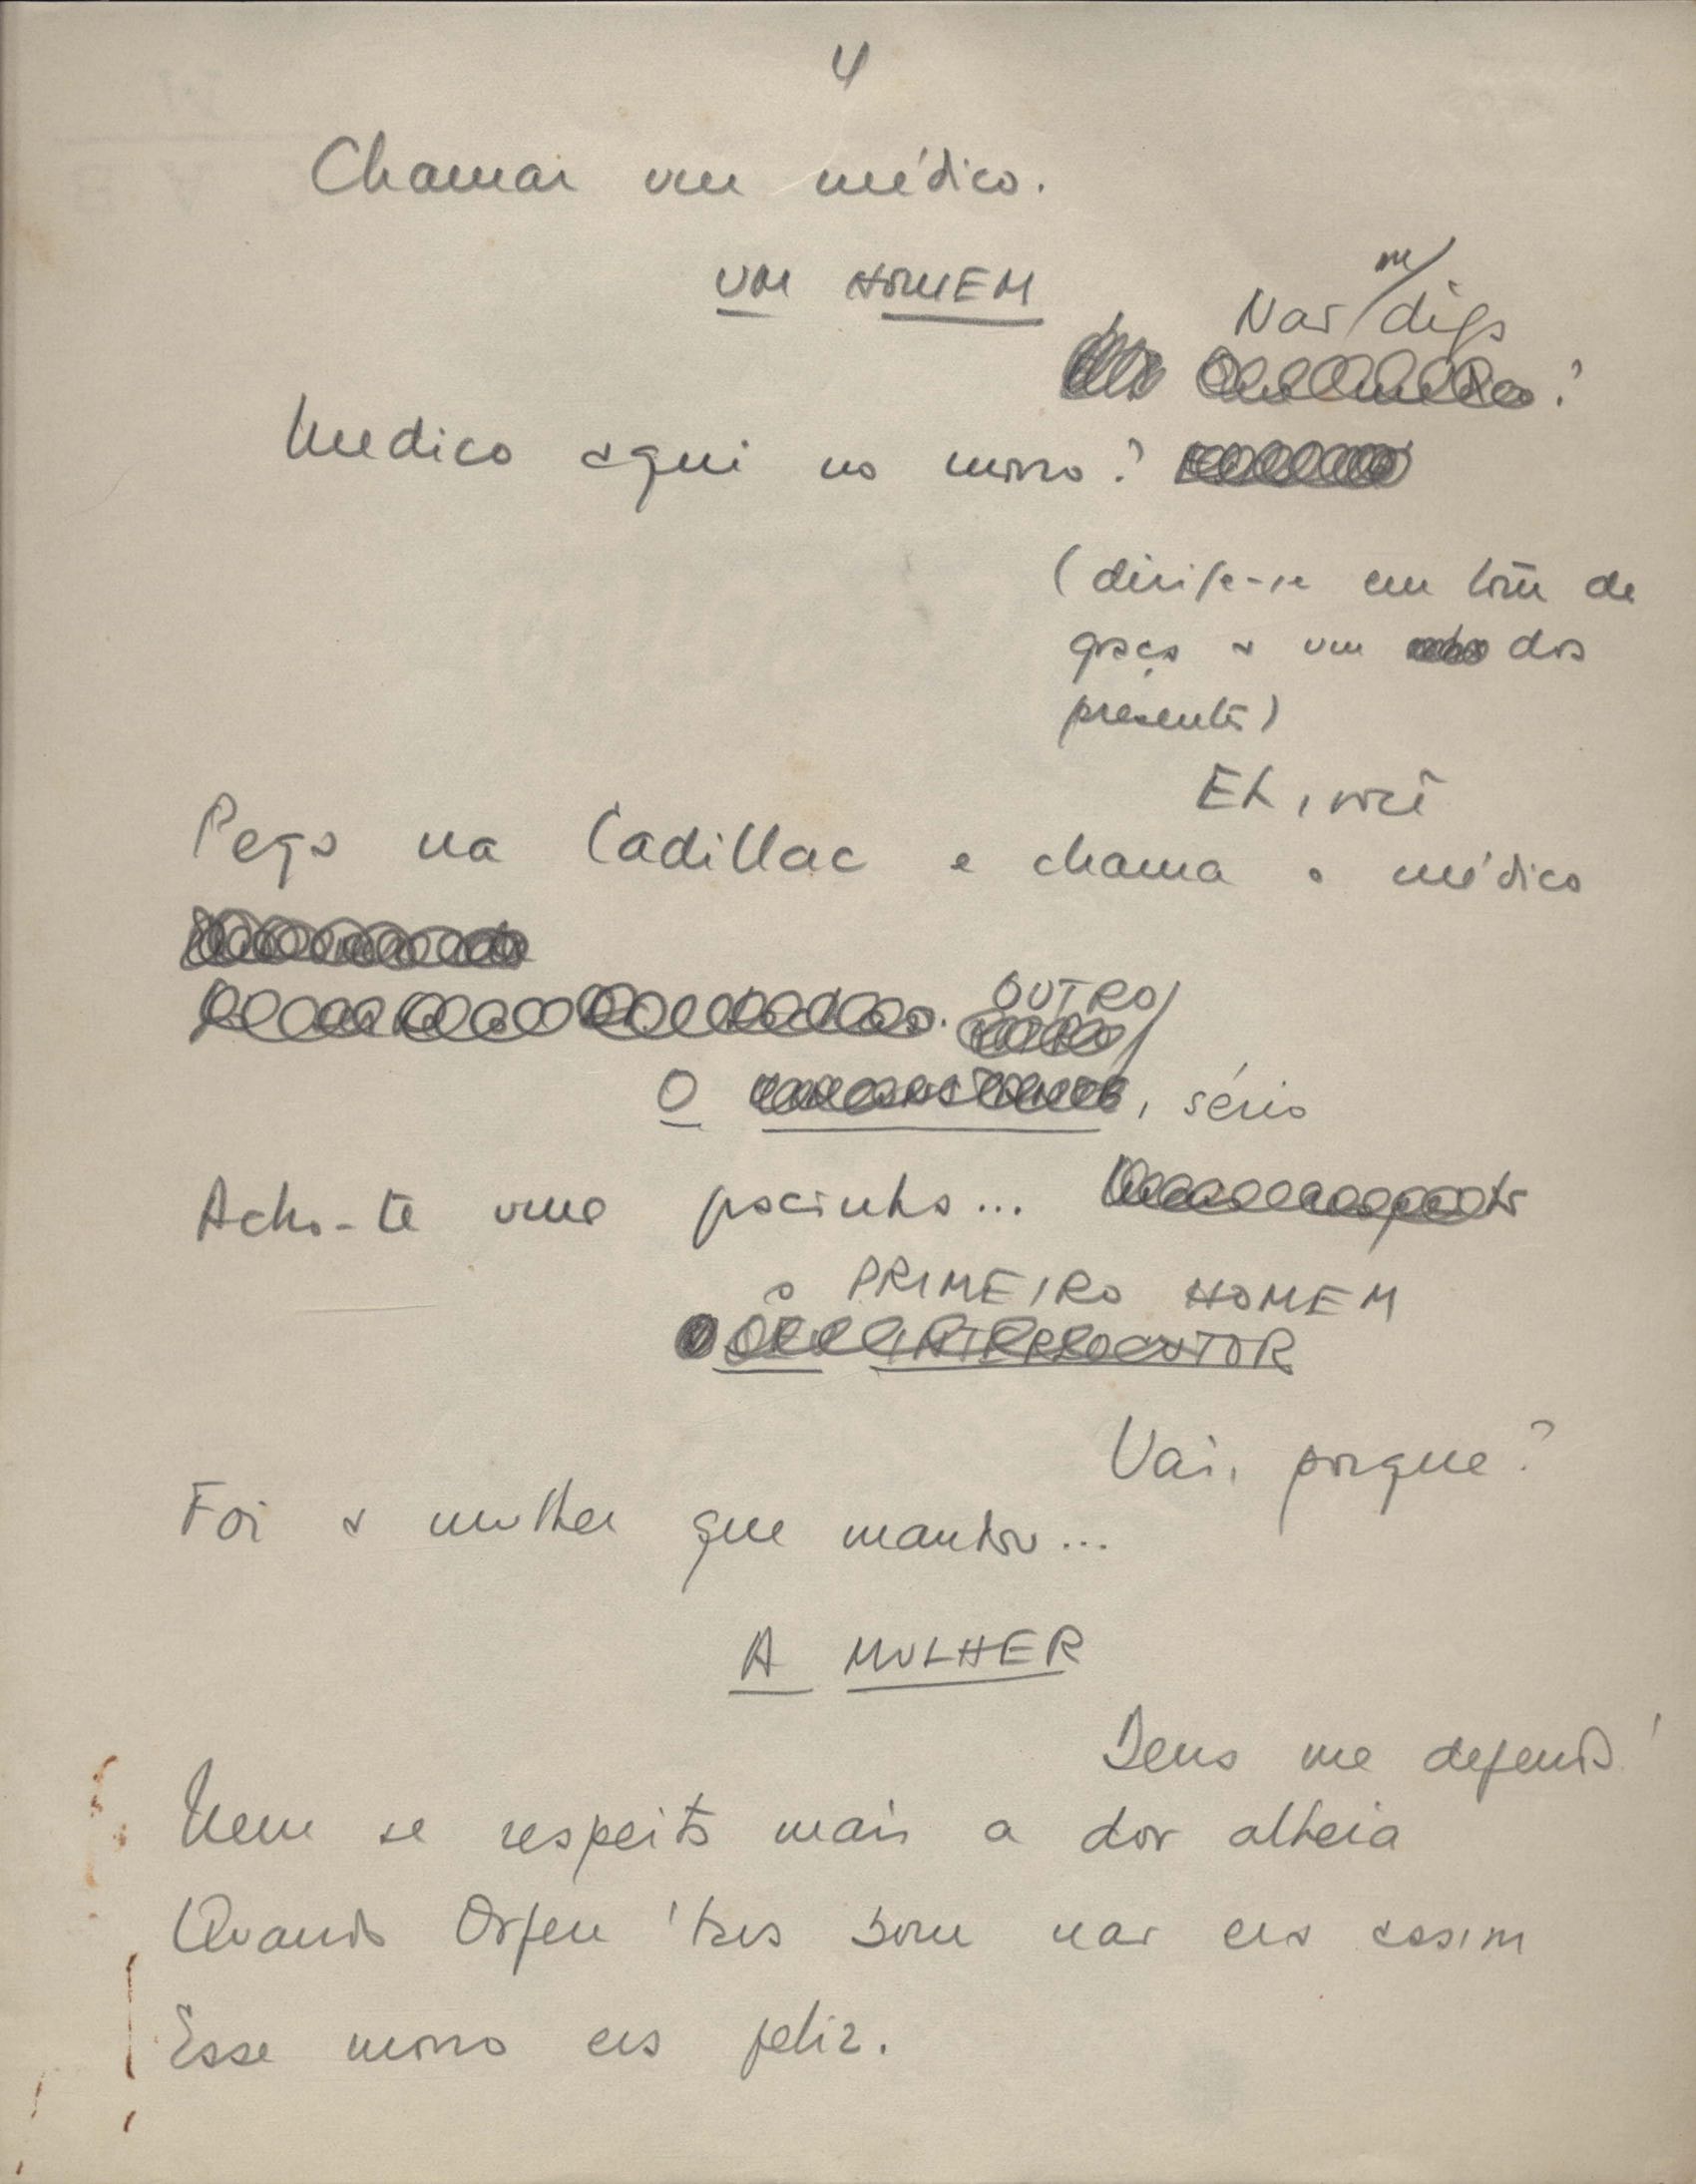 4
Chamar um médico.
UM HOMEM
m/
Nao diga
?
Medico aqui no morro?
(dirige-se em tom de
graça a um dos
presentes)
Eh, você
Pega na Cadillac e chama o médico
OUTRO/
O , sério
Acho-te uma gracinha...
O PRIMEIRO HOMEM
INTERLOCUTOR
Vai, porque?
Foi a mulher que mandou...
A MULHER
Deus me defenda!
Nem se respeita mais a dor alheia
Quando Orfeu 'tava bom nao era assim
Esse morro era feliz.